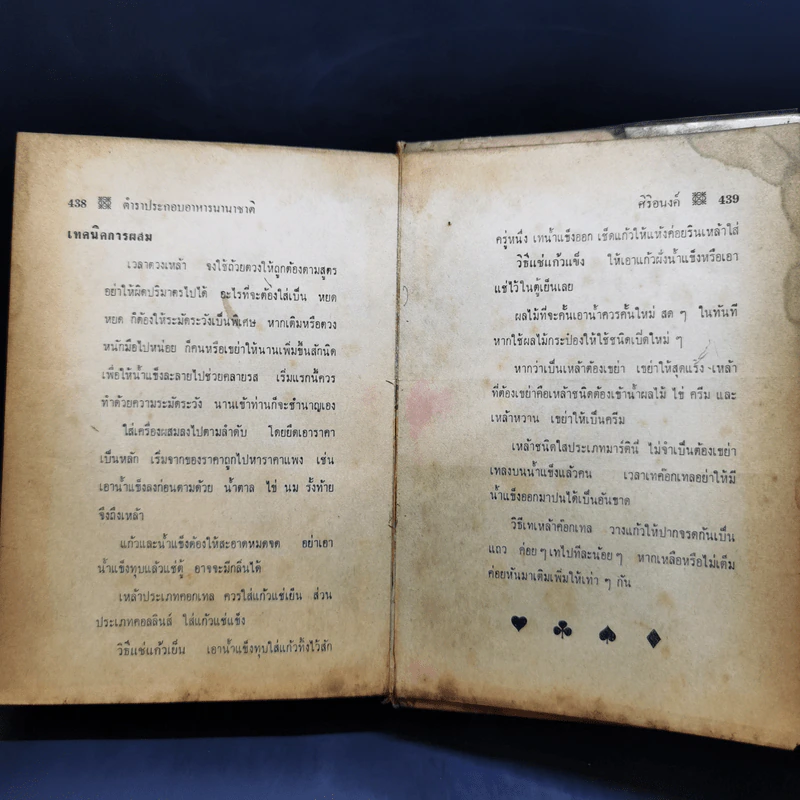 438 ตำราประกอบอาหารนานาชาติ
เทคนิคการผสม
เวลาตวงเหล้า จงใช้ถ้วยตวงให้ถูกต้องตามสูตร
อย่าให้ผิดปริมาตรไปได้ อะไรที่จะต้องใส่เป็น หยด
หยด ก็ต้องให้ระมัดระวังเป็นพิเศษ หากเติมหรือตวง
หนักมือไปหน่อย ก็คนหรือเขย่าให้นานเพิ่มขึ้นสักนิด
เพื่อให้น้ำแข็งละลายไปช่วยคลายรส เริ่มแรกนี้ควร
ทำด้วยความระมัดระวัง นานเข้าท่านก็จะชำนาญเอง
ใส่เครื่องผสมลงไปตามลำดับ โดยยึดเอาราคา
เป็นหลัก เริ่มจากของราคาถูกไปหาราคาแพง เช่น
เอาน้ำแข็งลงก่อนตามด้วย น้ำตาล ไข่ นม รั้งท้าย
จึงถึงเหล้า
แก้วและน้ำแข็งต้องให้สะอาดหมดจด อย่าเอา
น้ำแข็งทุบแล้วแช่ตู้ อาจจะมีกลิ่นได้
เหล้าประเภทคอกเทล ควรใส่แก้วแช่เย็น ส่วน
ประเภทคอลลินส์ ใส่แก้วแช่แข็ง
วิธีแช่แก้วเย็น เอาน้ำแข็งทุบใส่แก้วทิ้งไว้สัก
ศิริอนงค์ 439
ครู่หนึ่ง เทน้ำแข็งออก เช็ดแก้วให้แห้งค่อยรินเหล้าใส่
วิธีแช่แก้วแข็ง ให้เอาแก้วฝังน้ำแข็งหรือเอา
แช่ไว้ในตู้เย็นเลย
ผลไม้ที่จะคั้นเอาน้ำควรคั้นใหม่ สด ๆ ในทันที
หากใช้ผลไม้กระป๋องให้ใช้ชนิดเปิดใหม่ ๆ
หากว่าเป็นเหล้าต้องเขย่า เขย่าให้สุดแรง เหล้า
ที่ต้องเขย่าคือเหล้าชนิดต้องเข้าน้ำผลไม้ ไข่ ครีม และ
เหล้าหวาน เขย่าให้เป็นครีม
เหล้าชนิดใสประเภทมาร์ตินี่ ไม่จำเป็นต้องเขย่า
เทลงบนน้ำแข็งแล้วคน เวลาเทค๊อกเทลอย่าให้มี
น้ำแข็งออกมาปนได้เป็นอันขาด
วิธีเทเหล้าค๊อกเทล วางแก้วให้ปากจรดกันเป็น
แถว ค่อย ๆ เทไปทีละน้อย ๆ หากเหลือหรือไม่เต็ม
ค่อยหันมาเติมเพิ่มให้เท่า ๆ กัน